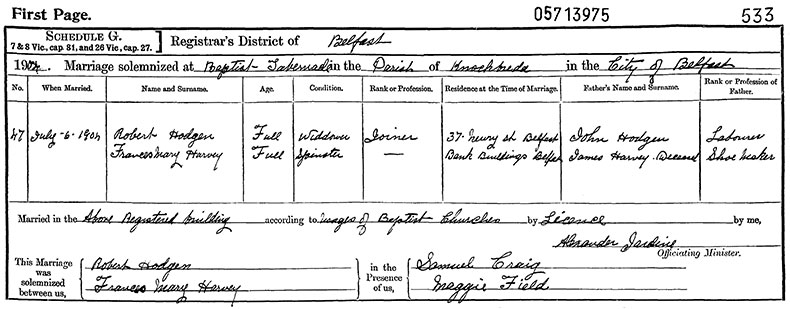 First Page. 05713975 533
SCHEDULE G.
7 & 8 Vic, cap. 81, and 26 Vic, cap. 27.
Registrar's District of Belfast
1904. Marriage solemnized at Baptist Tabernacle in the Parish of Knockbreda in the City of Belfast
No. When Married. Name and Surname. Age. Condition. Rank or Profession. Residence at the Time of Marriage. Father's Name and Surname. Rank or Profession of Father.
47 July-6-1904 Robert Hodgen Full Widower Joiner 37 Newry St Belfast John Hodgen Labourer
Frances Mary Harvey Full Spinster — Bank Buildings Belfast James Harvey Deceased Shoe Maker
Married in the Above Registered building according to usages of Baptist Churches by Licence by me,
Alexander Jardine
Officiating Minister.
This Marriage was solemnized between us,
Robert Hodgen
Frances Mary Harvey
in the Presence of us,
Samuel Craig
Maggie Field